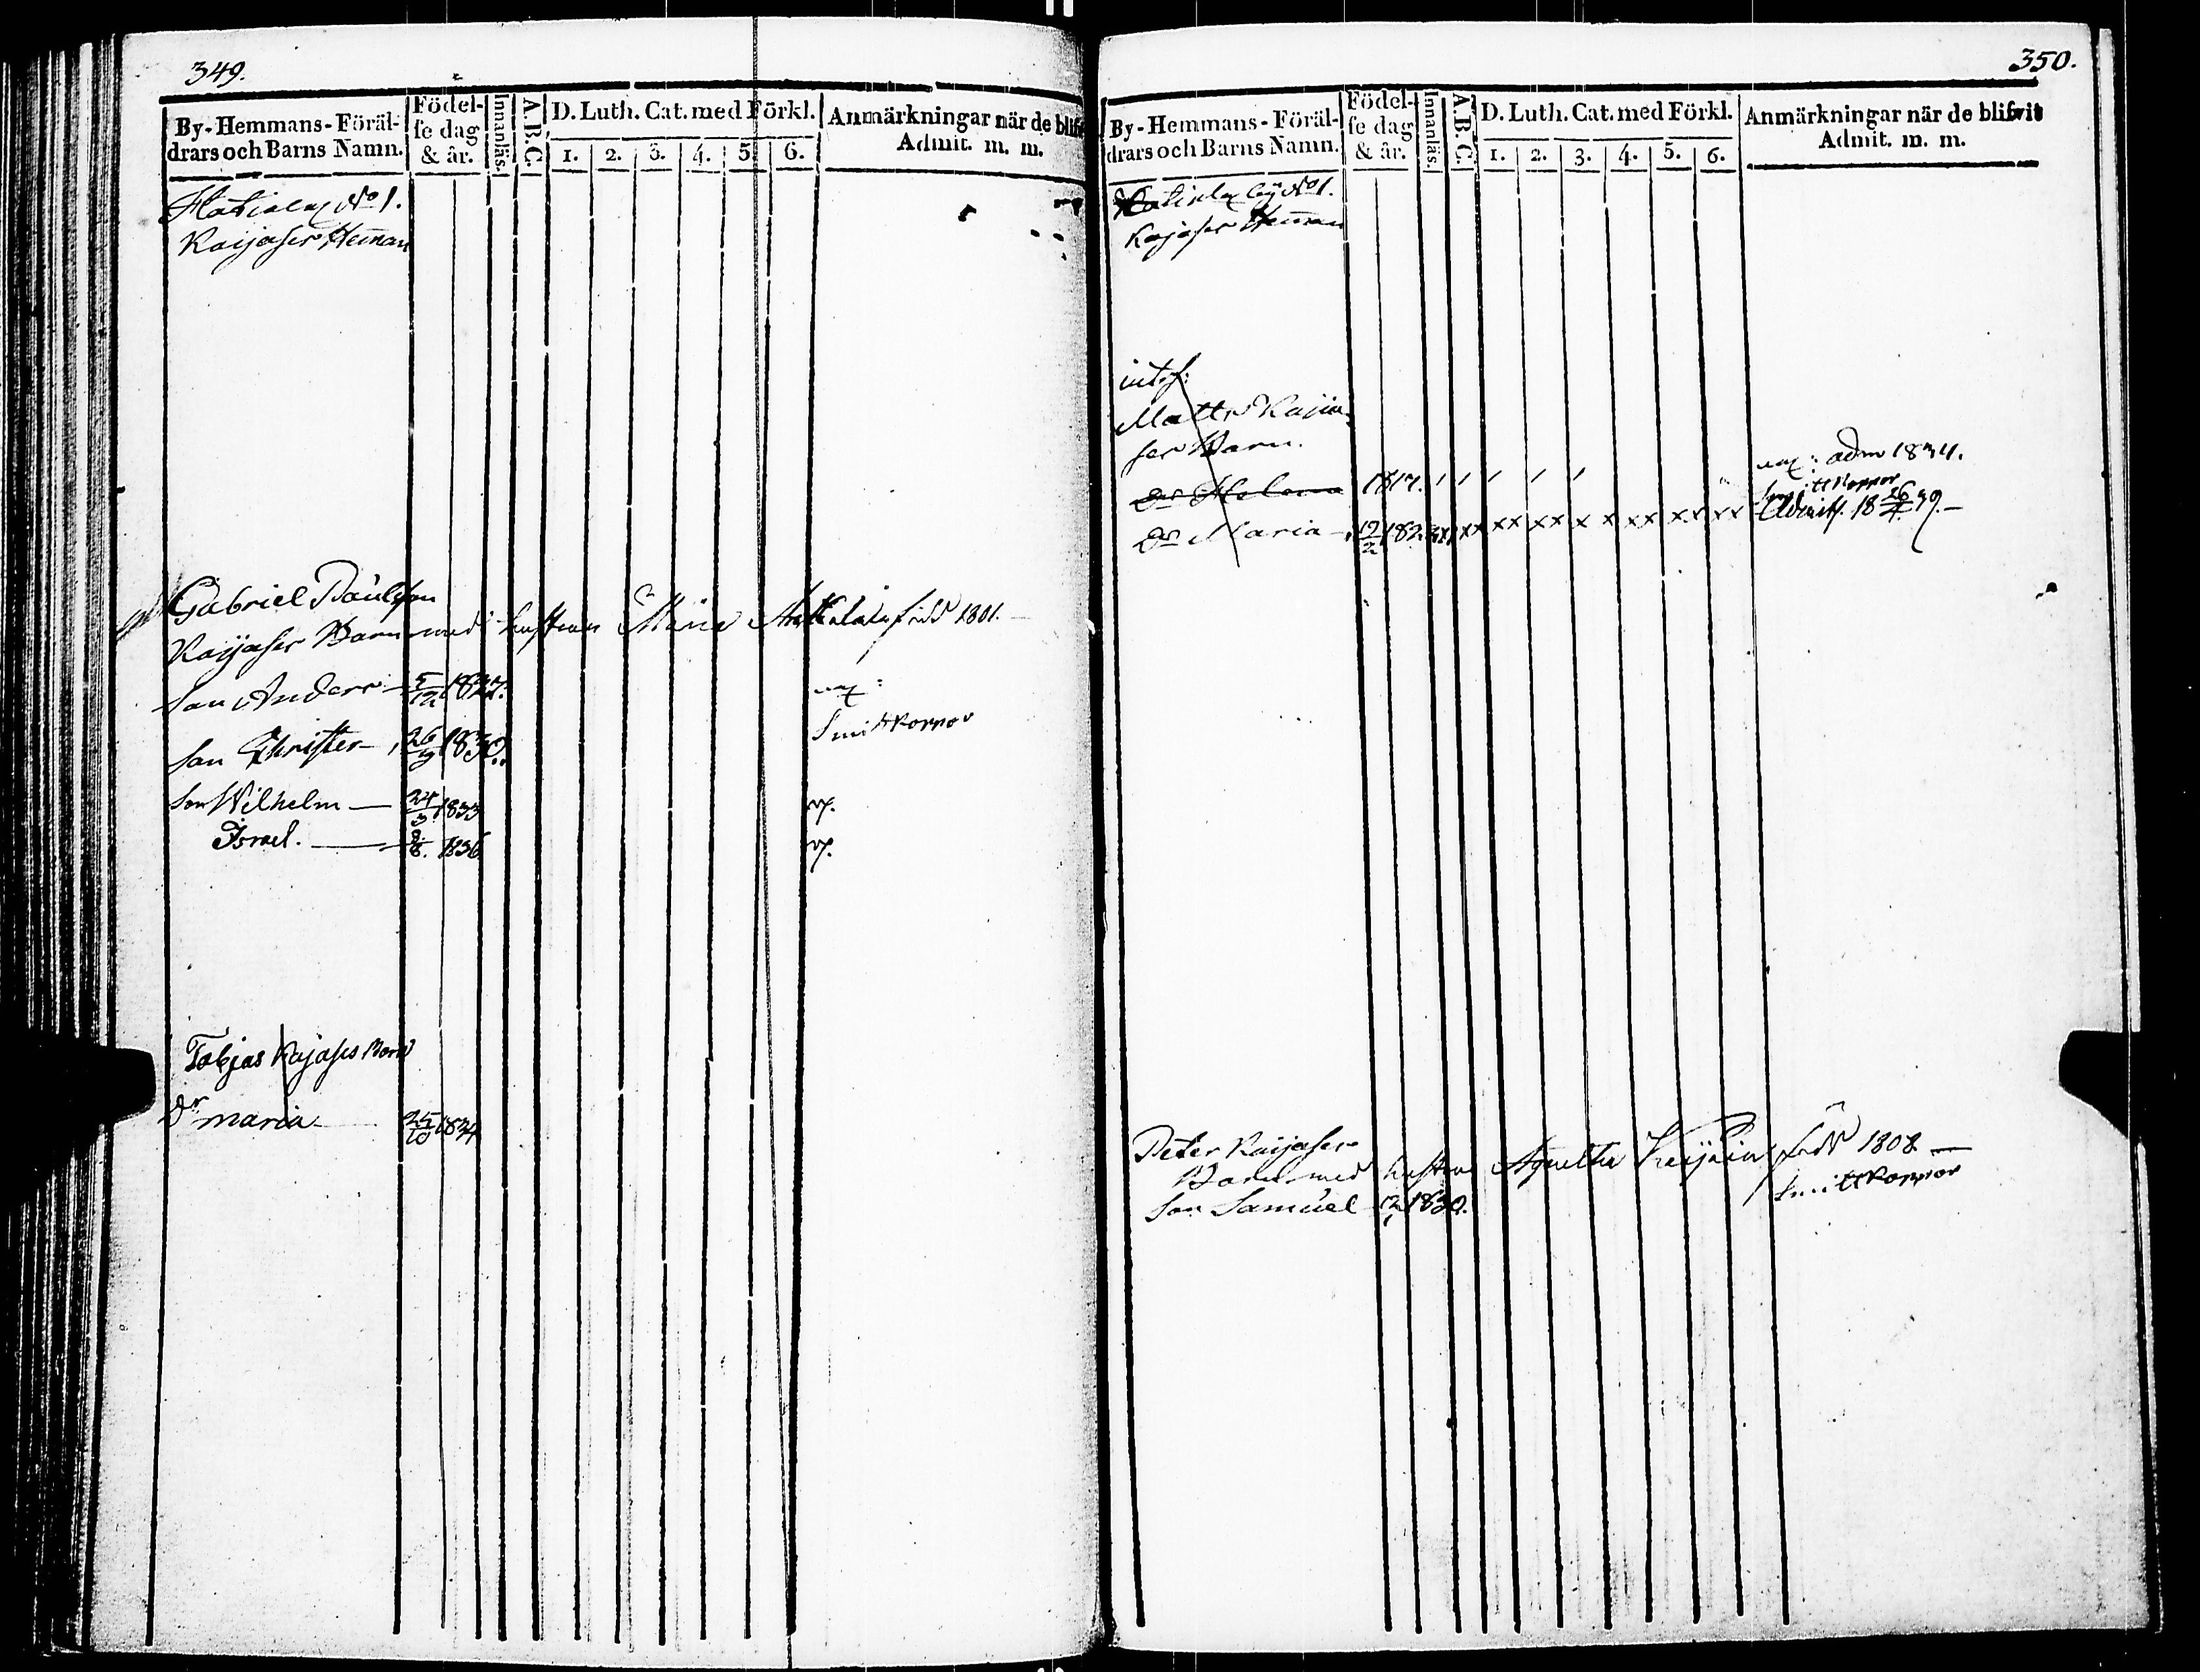 349.
By-Hemmans-Föräl-
drars och Barns Namn.
Födel-
se dag
& år.
Innanläs.
A.B.C.
D. Luth. Cat. med Förkl.
1. 2. 3. 4. 5. 6.
Anmärkningar när de blifv
Admit. m. m.
No 1.
Kaijaser Heman
Gabriel Paulsson
Kaijaser Barn med hustrun Maria född 1801.
son Anders 5/12 1827.
vac:
Smittkoppor
son Christer 26/9 1830.
son Wilhelm 24/3 1833
v.
Israel. 8. 1836
v.
Tobias Kajases Barn
Dr maria 25/10 1834
350.
By-Hemmans-Föräl-
drars och Barns Namn.
Födel-
se dag
& år.
Innanläs.
A.B.C.
D. Luth. Cat. med Förkl.
1. 2. 3. 4. 5. 6.
Anmärkningar när de blifvit
Admit. m. m.
by No 1.
Kajaser Heman
Matts Kajia-
ser Barn.
Dr Helena 1817. vac: adm 1834.
Smittkoppor
Dr Maria 12/2 182 xx xx xx x x xx xx xx Admitt. 18 26/ 39.
Peter Kaijaser
Barn med hustru Agnetha född 1808
Smittkoppor
Son Samuel 12/ 1830.